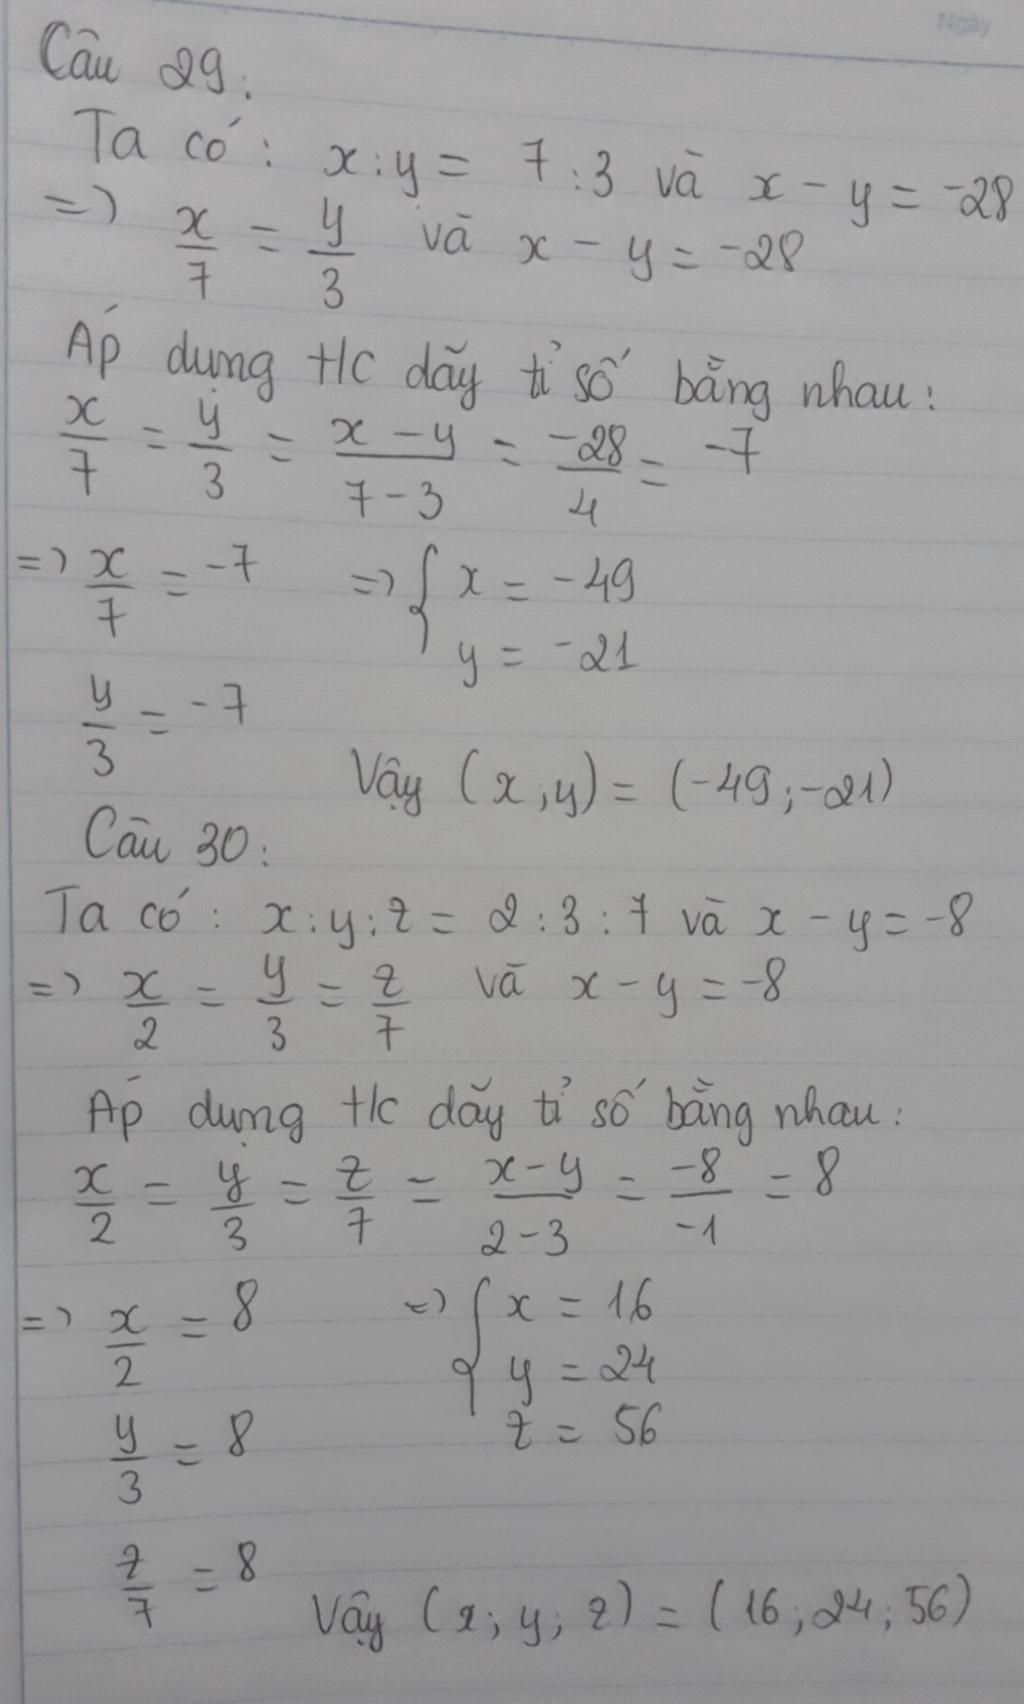 Ngày
Câu 29:
Ta có: x:y = 7:3 và x - y = -28
=> x/7 = y/3 và x - y = -28
Áp dụng t/c dãy tỉ số bằng nhau:
x/7 = y/3 = (x - y)/(7 - 3) = -28/4 = -7
=> x/7 = -7 => { x = -49
y = -21
y/3 = -7
Vậy (x;y) = (-49;-21)
Câu 30:
Ta có: x:y:z = 2:3:7 và x - y = -8
=> x/2 = y/3 = z/7 và x - y = -8
Áp dụng t/c dãy tỉ số bằng nhau:
x/2 = y/3 = z/7 = (x - y)/(2 - 3) = -8/-1 = 8
=> x/2 = 8 => { x = 16
y = 24
y/3 = 8 z = 56
z/7 = 8
Vậy (x; y; z) = (16; 24; 56)